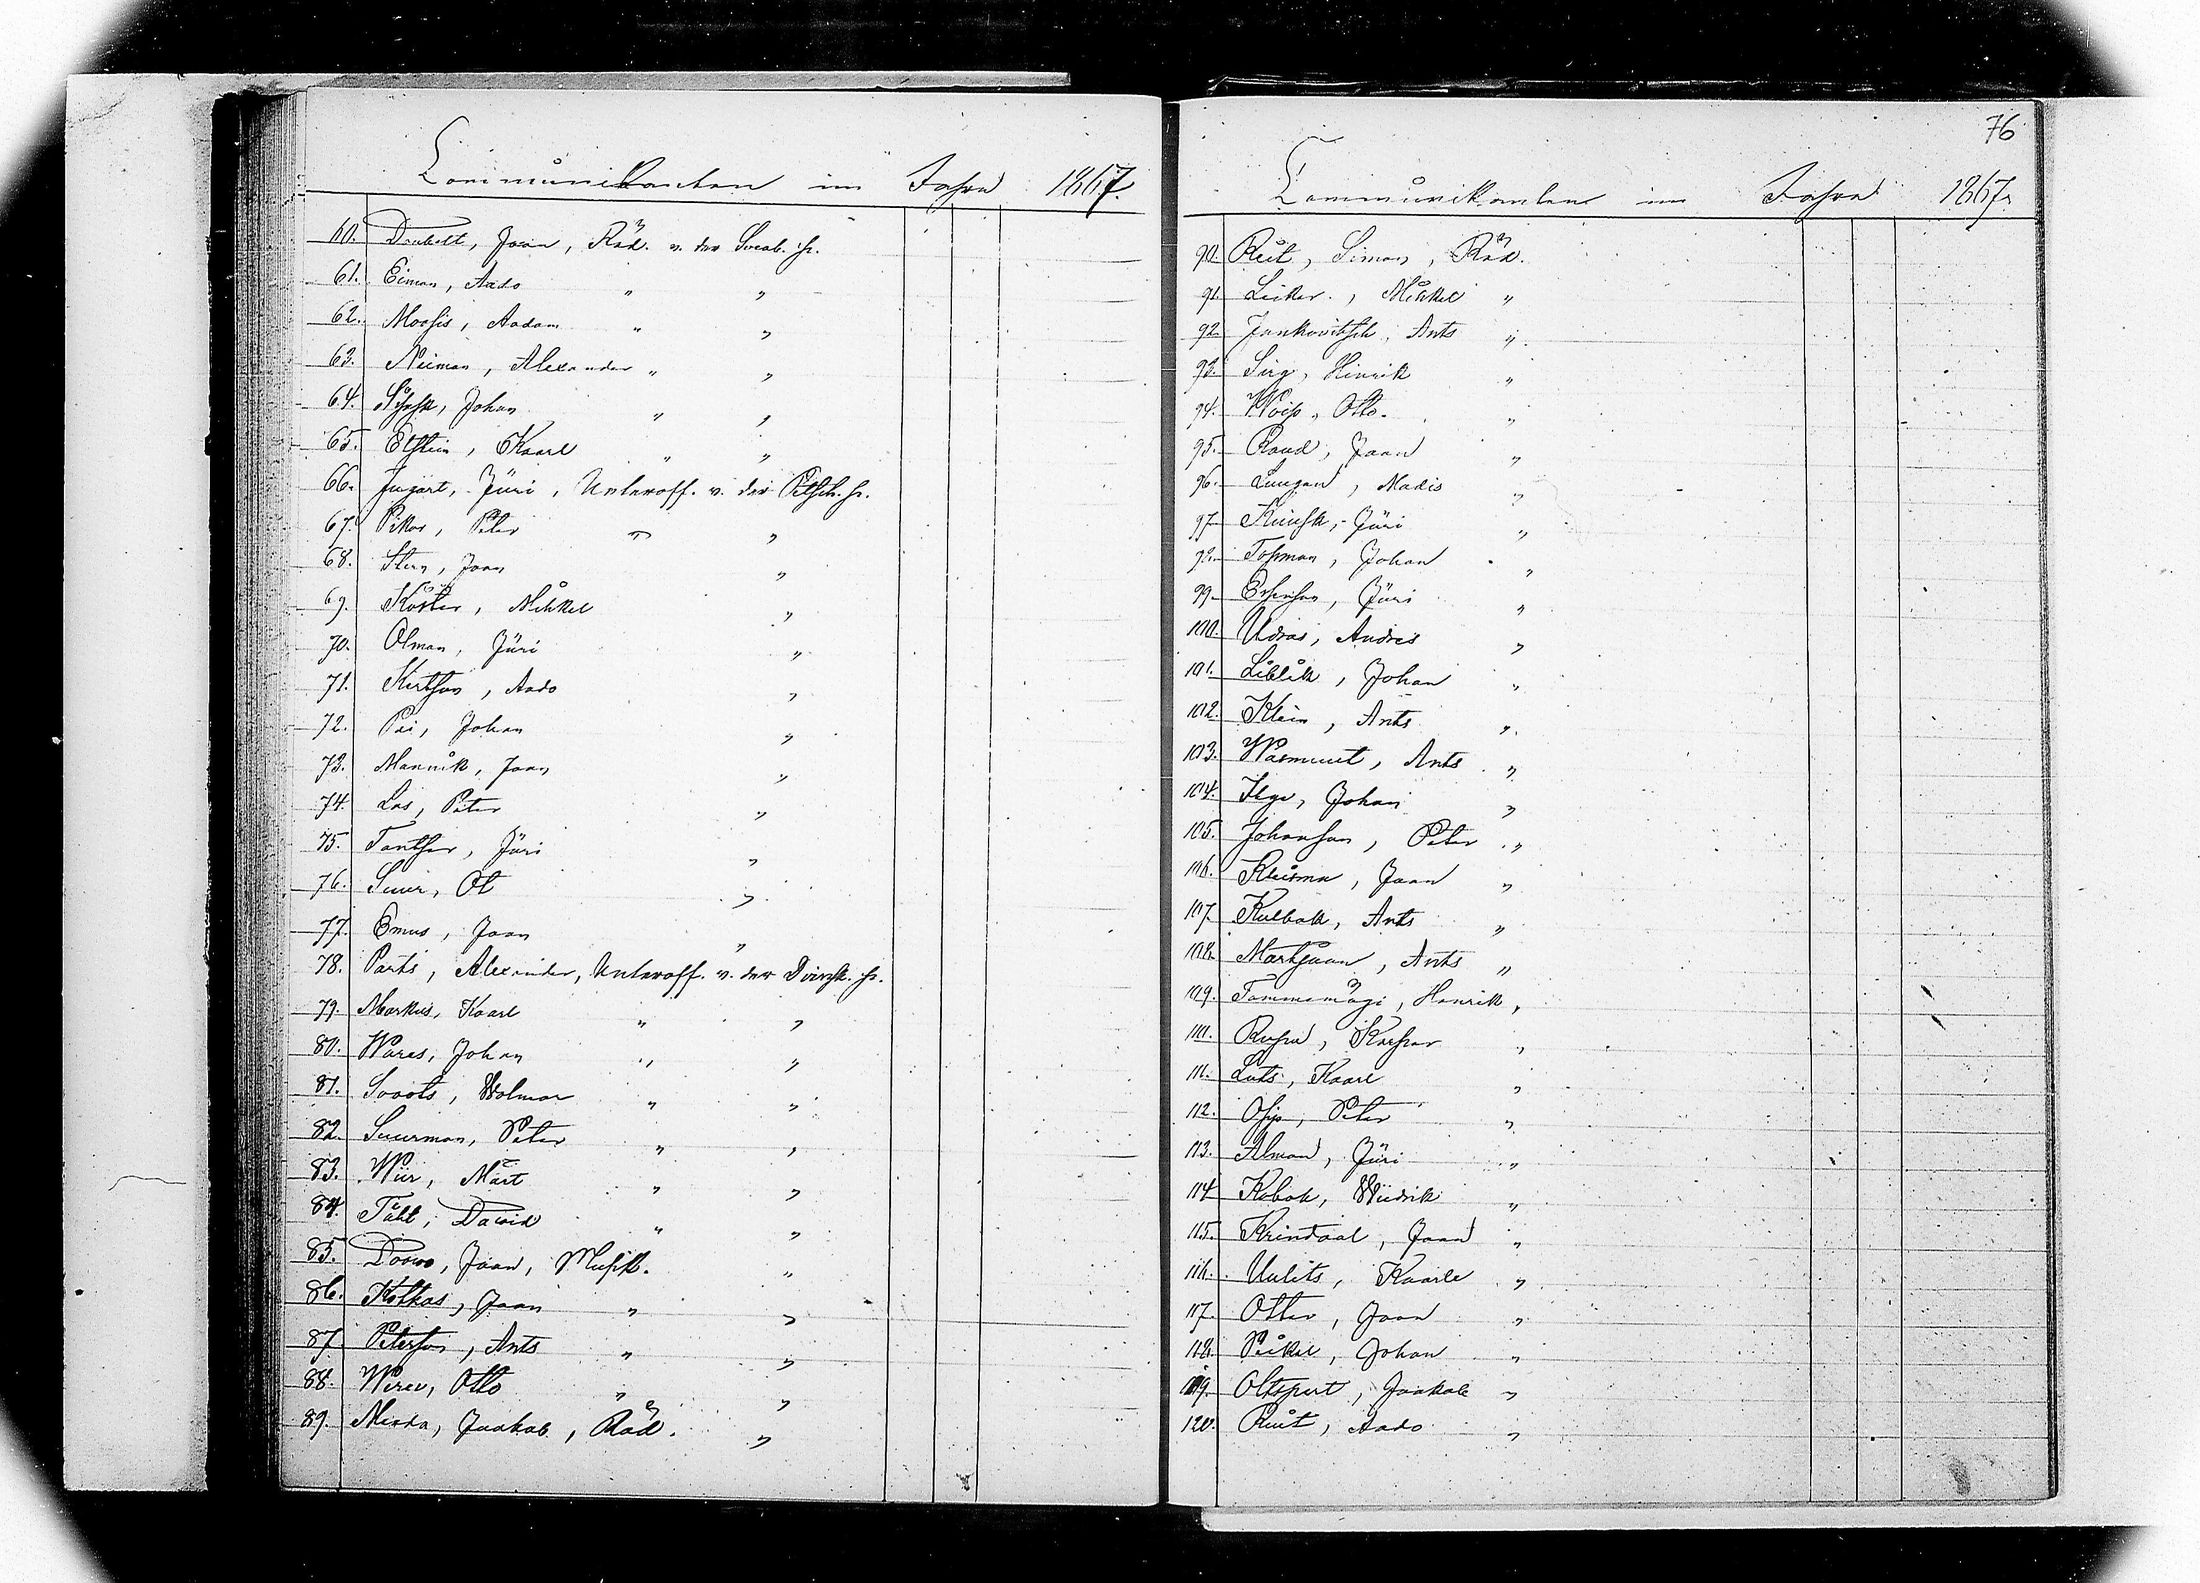 Communikanten im Jahre 1867.
60. Dankelt, Jaan, Räd. v. der Sveab. fr.
61. Eiman, Aado " "
62. Moosis, Aadam " "
63. Neiman, Alexander " "
64. Johan " "
65. Etstein, Kaarl " "
66. Jugart, Jüri, Unteroff. v. der Petsch. fr.
67. Pikar, Peter " "
68. Stern, Jaan "
69. Köster, Mihkel "
70. Olman, Jüri "
71. Kertson, Aado "
72. Pii, Johan "
73. Mannik, Jaan "
74. Las, Peter "
75. Tantser, Jüri "
76. Suur, Ot "
77. Emus, Jaan "
78. Parts, Alexander, Unteroff. v. der Dvinsk. fr.
79. Markus, Kaarl " "
80. Wares, Johan " "
81. Soaots, Wolmar " "
82. Suurman, Peter " "
83. Wiir, Märt " "
84. Tähl, David " "
85. Jaan, Musik. "
86. Kotkas, Jaan " "
87. Peterson, Ants " "
88. Wirev, Otto " "
89. Jaakob, Räd. "
76
Communikanten im Jahre 1867.
90. Reit, Simon, Räd.
91. Mihkel "
92. Jankovitsch, Ants "
93. Sirg, Hinrik "
94. Woiss, Otto "
95. Raud, Jaan "
96. Madis "
97. Kuusk, Jüri "
98. Tossman, Johan "
99. Jüri "
100. Udras, Andres "
101. Liblik, Johan "
102. Klein, Ants "
103. Wasmuut, Ants "
104. Ilge, Johan "
105. Johanson, Peter "
106. Kuusma, Jaan "
107. Kulbak, Ants "
108. Martsoon, Ants "
109. Tammemägi, Hanrik "
110. Kaspar "
111. Luts, Kaarl "
112. Osip, Peter "
113. Alman, Jüri "
114. Kobak, Wiidrik "
115. Krindaal, Jaan "
116. Uulits, Kaarle "
117. Otter, Jaan "
118. Johan "
119. Jaakob "
120. Ruut, Aado "